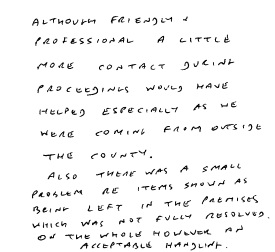 ALTHOUGH FRIENDLY &
PROFESSIONAL A LITTLE
MORE CONTACT DURING
PROCEEDINGS WOULD HAVE
HELPED ESPECIALLY AS WE
WERE COMING FROM OUTSIDE
THE COUNTY.
ALSO THERE WAS A SMALL
PROBLEM RE ITEMS SHOWN AS
BEING LEFT IN THE PREMISES
WHICH WAS NOT FULLY RESOLVED.
ON THE WHOLE HOWEVER AN
ACCEPTABLE HANDLING.